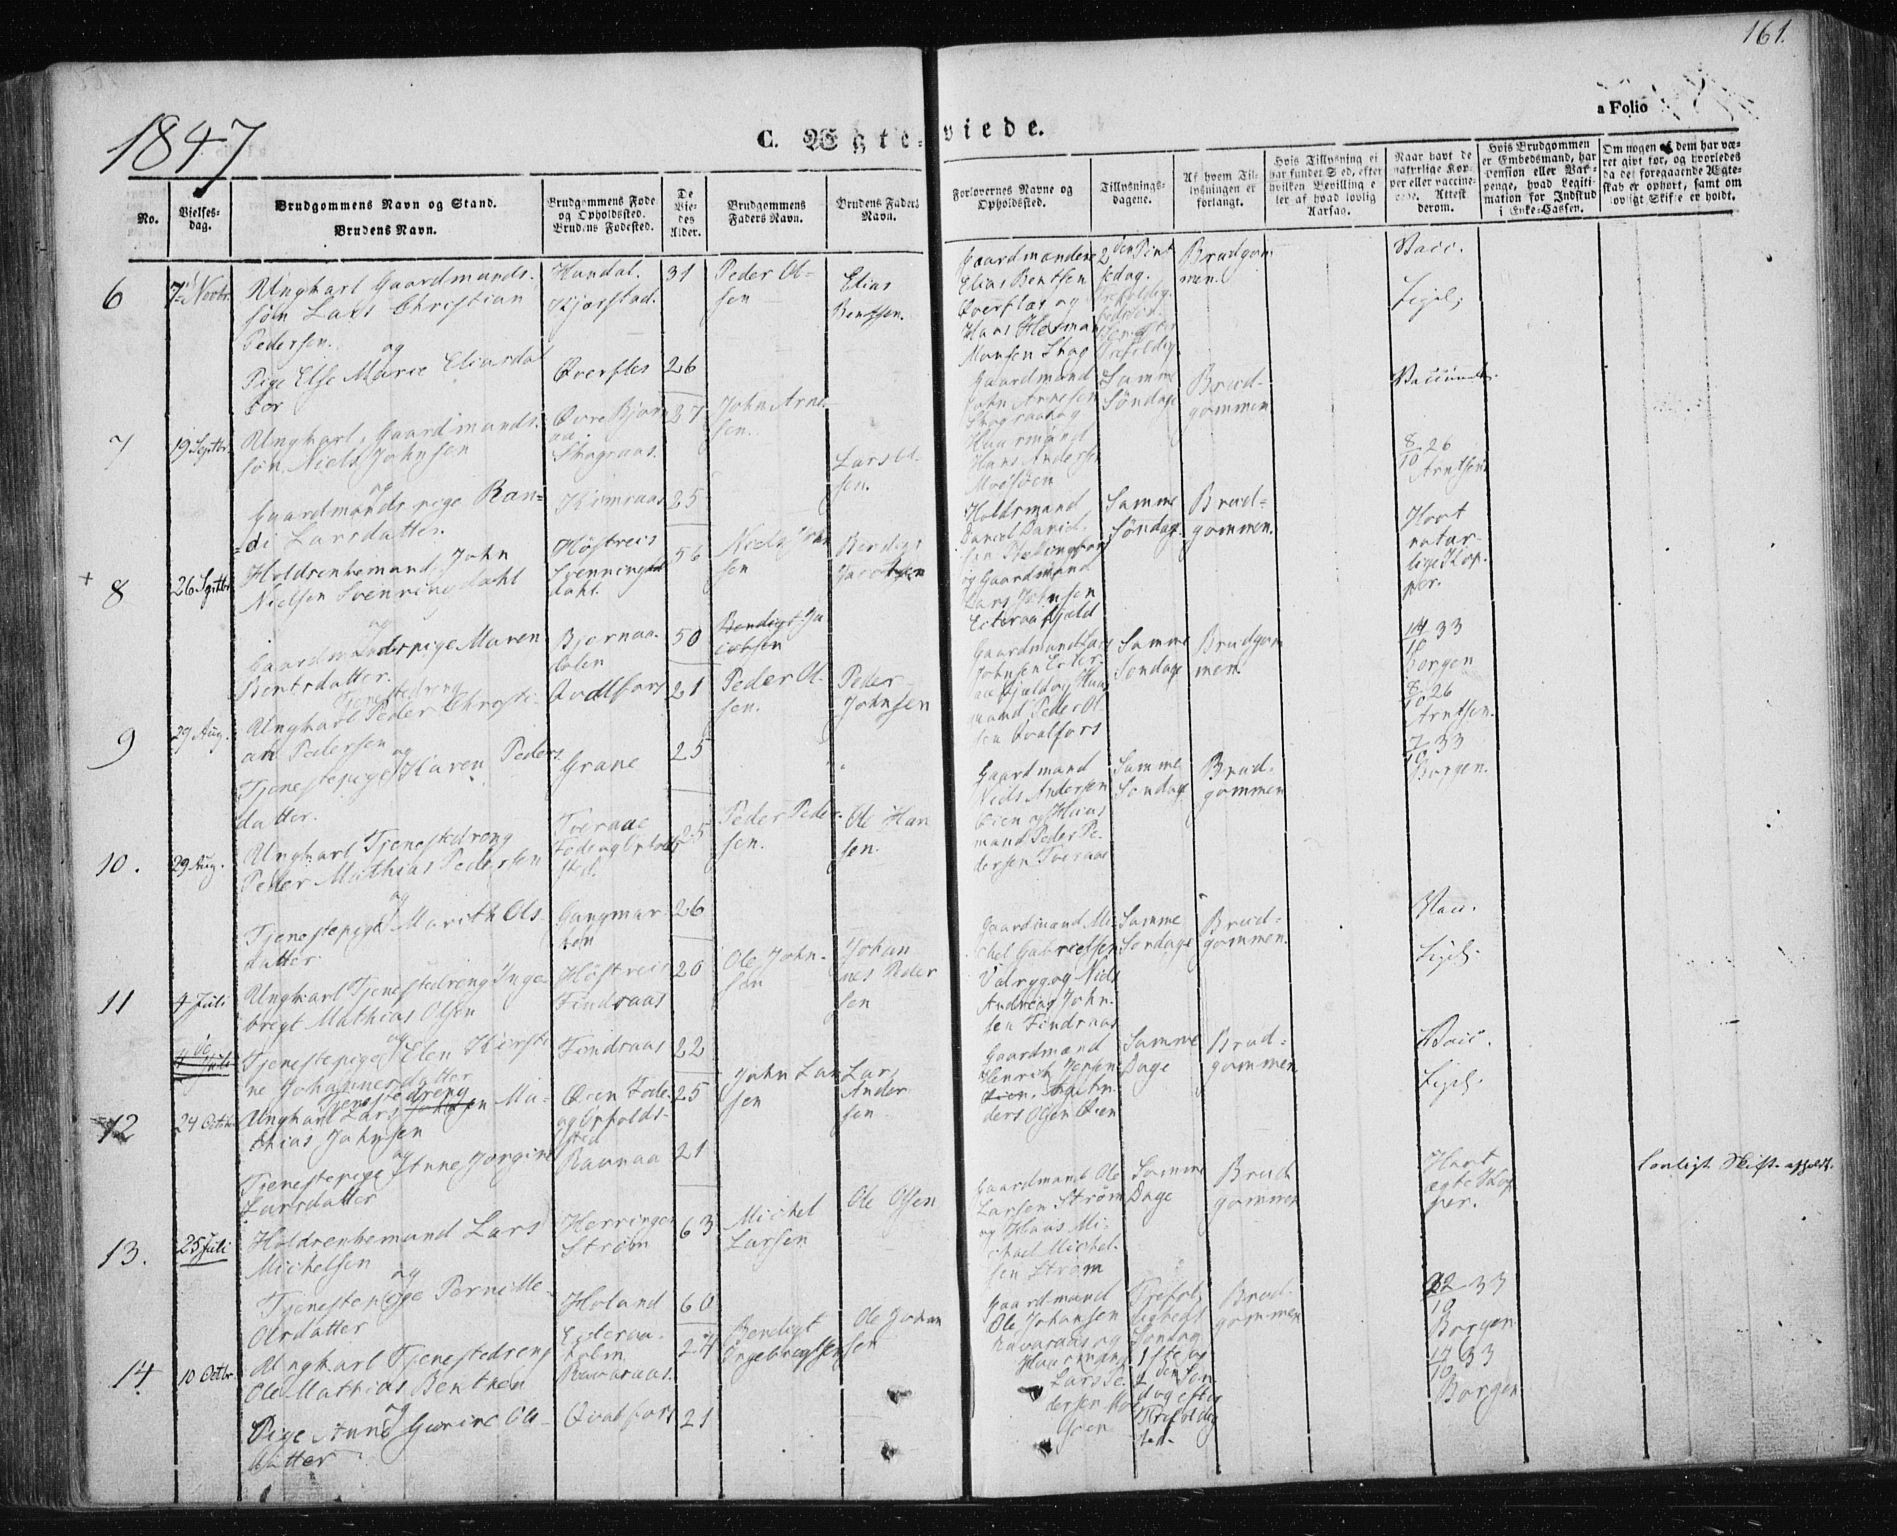 161.
a Folio
1847
C. Ægte-viede.
No.
Vielses-
dag.
Brudgommens Navn og Stand.
Brudens Navn.
Brudgommens Føde
og Opholdssted.
Brudens Fødested.
De
Vie-
des
Alder.
Brudgommens
Faders Navn.
Brudens Faders
Navn.
Forlovernes Navne og
Opholdssted.
Tillysnings-
dagene.
Af hvem Til-
lysningen er
forlangt.
Hvis Tillysning ei
har fundet Sted, efter
hvilken Bevilling e
ler af hvad lovlig
Aarsag.
Naar havt de
naturlige Kop-
per eller vaccine-
rede. Attest
derom.
Hvis Brudgommen
er Embedsmand, har
Pension eller Var-
penge, hvad Legiti-
mation for Indskud
i Enke-Cassen.
Om nogen af dem har væ-
ret givt før, og hvorledes
da det foregaaende Ægte-
skab er ophørt, samt om
lovligt Skifte er holdt.
6
7de Novbr.
Ungkarl Gaardmands-
søn Lars Christian
Pedersen.
og
Pige Else Marie Eliasdat
ter
Kundal.
Kjærstad.
Øverfles
31
26
Peder Ol-
sen
Elias
Bentsen.
Gaardmændene
Elias Bentsen
Øverfles og
Hans Herman
Monsen Skog
2den Pint
sedag.
Brudgom
men.
Vacc.
Ligel.
7
19 Septbr.
Ungkarl, Gaardmands-
søn Niels Johnsen
og
Gaardmands pige Ran-
di Larsdatter.
Øvre Bjorn
aa.
Skograas.
25
27
John Arnt-
sen.
Lars Ol
sen.
Gaardmand
John Arntsen
Skograa og
Huusmand
Hans Andersen
Samme
Søndage
Brud-
gommen
Vaccinerede.
8/10 26
Arntsen
8
26 Septbr.
Holdsenbemand John
Nielsen Svenningdahl
og
Gaardmandspige Maren
Bentsdatter.
Høstreis
Svenning
dahl.
Bjornaa-
dalen
56
50
Niels John
sen
Bendigt
Jacobsen
Bendigt Ja
cobsen
Holdsmand
Daniel Daniel-
sen
og Gaardmand
Lars Johnsen
Samme
Søndage.
Brud-
gommen.
Havt
natur-
lige Kop-
per.
14/10 33
Borgen
9
29 Aug.
Tjenestedreng
Ungkarl Peder Christi-
an Pedersen
og
Tjenestepige Karen Peders
datter.
Qvalfors
Grane
21
25
Peder Ol-
sen.
Peder
Johnsen
Gaardmand Lars
Johnsen Ester-
aafjeld og Huus
mand Peder Ol
sen Qvalfors
Samme
Søndage
Brudgom
men.
8/10 26
Arntsen.
7/10 33
Borgen.
10.
29 Aug.
Ungkarl Tjenestedreng
Peder Mathias Pedersen
og
Tjenestepige Marith Ols
datter.
Tveraae
Føde og Ophold
sted.
25
26
Peder Peder-
sen.
Ole Han
sen.
Gaardmand
Niels Andersen
Øien og Huus
mand Peder Pe-
dersen Tveraae
Samme
Søndage
Brud-
gommen
Vacc.
Ligel.
11
4 Juli
Ungkarl Tjenestedreng Inge
brigt Mathias Olsen
og
Tjenestepige Elen Kirsti-
ne Johannesdatter
Høstreis
Findraas
Findraas
20
22
Ole John-
sen
Johan
nes Peder
sen
Gaardmand Mi-
chel Gabrielsen
Valryg og Niels
Andreas John-
sen Findraas
Samme
Søndage
Brud-
gommen.
4de Juli
12
24 Octbr.
Tjenestedreng
Ungkarl Lars Johnsen Ma-
thias Johnsen
og
Tjenestepige Anne Jorgine
Larsdatter
Øien Føde-
og Ophold-
sted
Ravnaa
25
21
John Lar
sen
Lars
Ander
sen
Gaardmænd
Henrik Jensen
Øien, An-
ders Olsen Øien
Samme
Dage
Brud-
gommen
Vacc.
Ligel.
13.
25 Juli
Holdsenbemand Lars
Michelsen
og
Tjenestepige Pernille
Olsdatter
Herringen
Strøm
Holand
63
60
Michel
Larsen
Ole Olsen
Gaardmand Ole
Larsen Strøm
og Haas Mi-
chael Michel-
sen Strøm
Samme
Dage
Brud
gommen
Havt
ægte Kop
per.
Lovligt Skifte afholdt.
14
10 Octbr.
Ungkarl Tjenestedreng
Ole Mathias Bentsen
og
Pige Anne Gurine Ols
datter
Esteraa-
holm
Ravaraas.
Qvalfors
24
21
Bendigt
Ingebregtsen
Ole Johan
sen
Gaardmand
Ole Johansen
Ravaraas og
Huusmand
Lars Pe-
dersen
Trefol-
digheds
Søndag
1ste og
2den Søn
dag efter
Trefoldig
hed.
Brud-
gommen
22/10 33
Borgen
14/10 33
Borgen